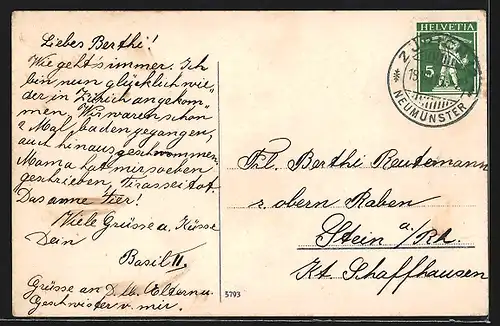 Liebes Berthi!
Wie geht's immer. Ich
bin nun glücklich wie„
der in Zürich angekom„
men. Wir waren schon
2 Mal baden gegangen,
auch hinausgeschwommen.
Mama hat mir soeben
geschrieben, Strassei tot.
Das arme Tier!
Viele Grüsse u. Küsse
Dein
Basil II.
Grüsse an D. lb. Eltern u.
Geschwister v. mir.
HELVETIA
5
NEUMÜNSTER
Frl. Berthi Reutemann
z. obern Raben
Stein a/Rh.
Kt. Schaffhausen
5793